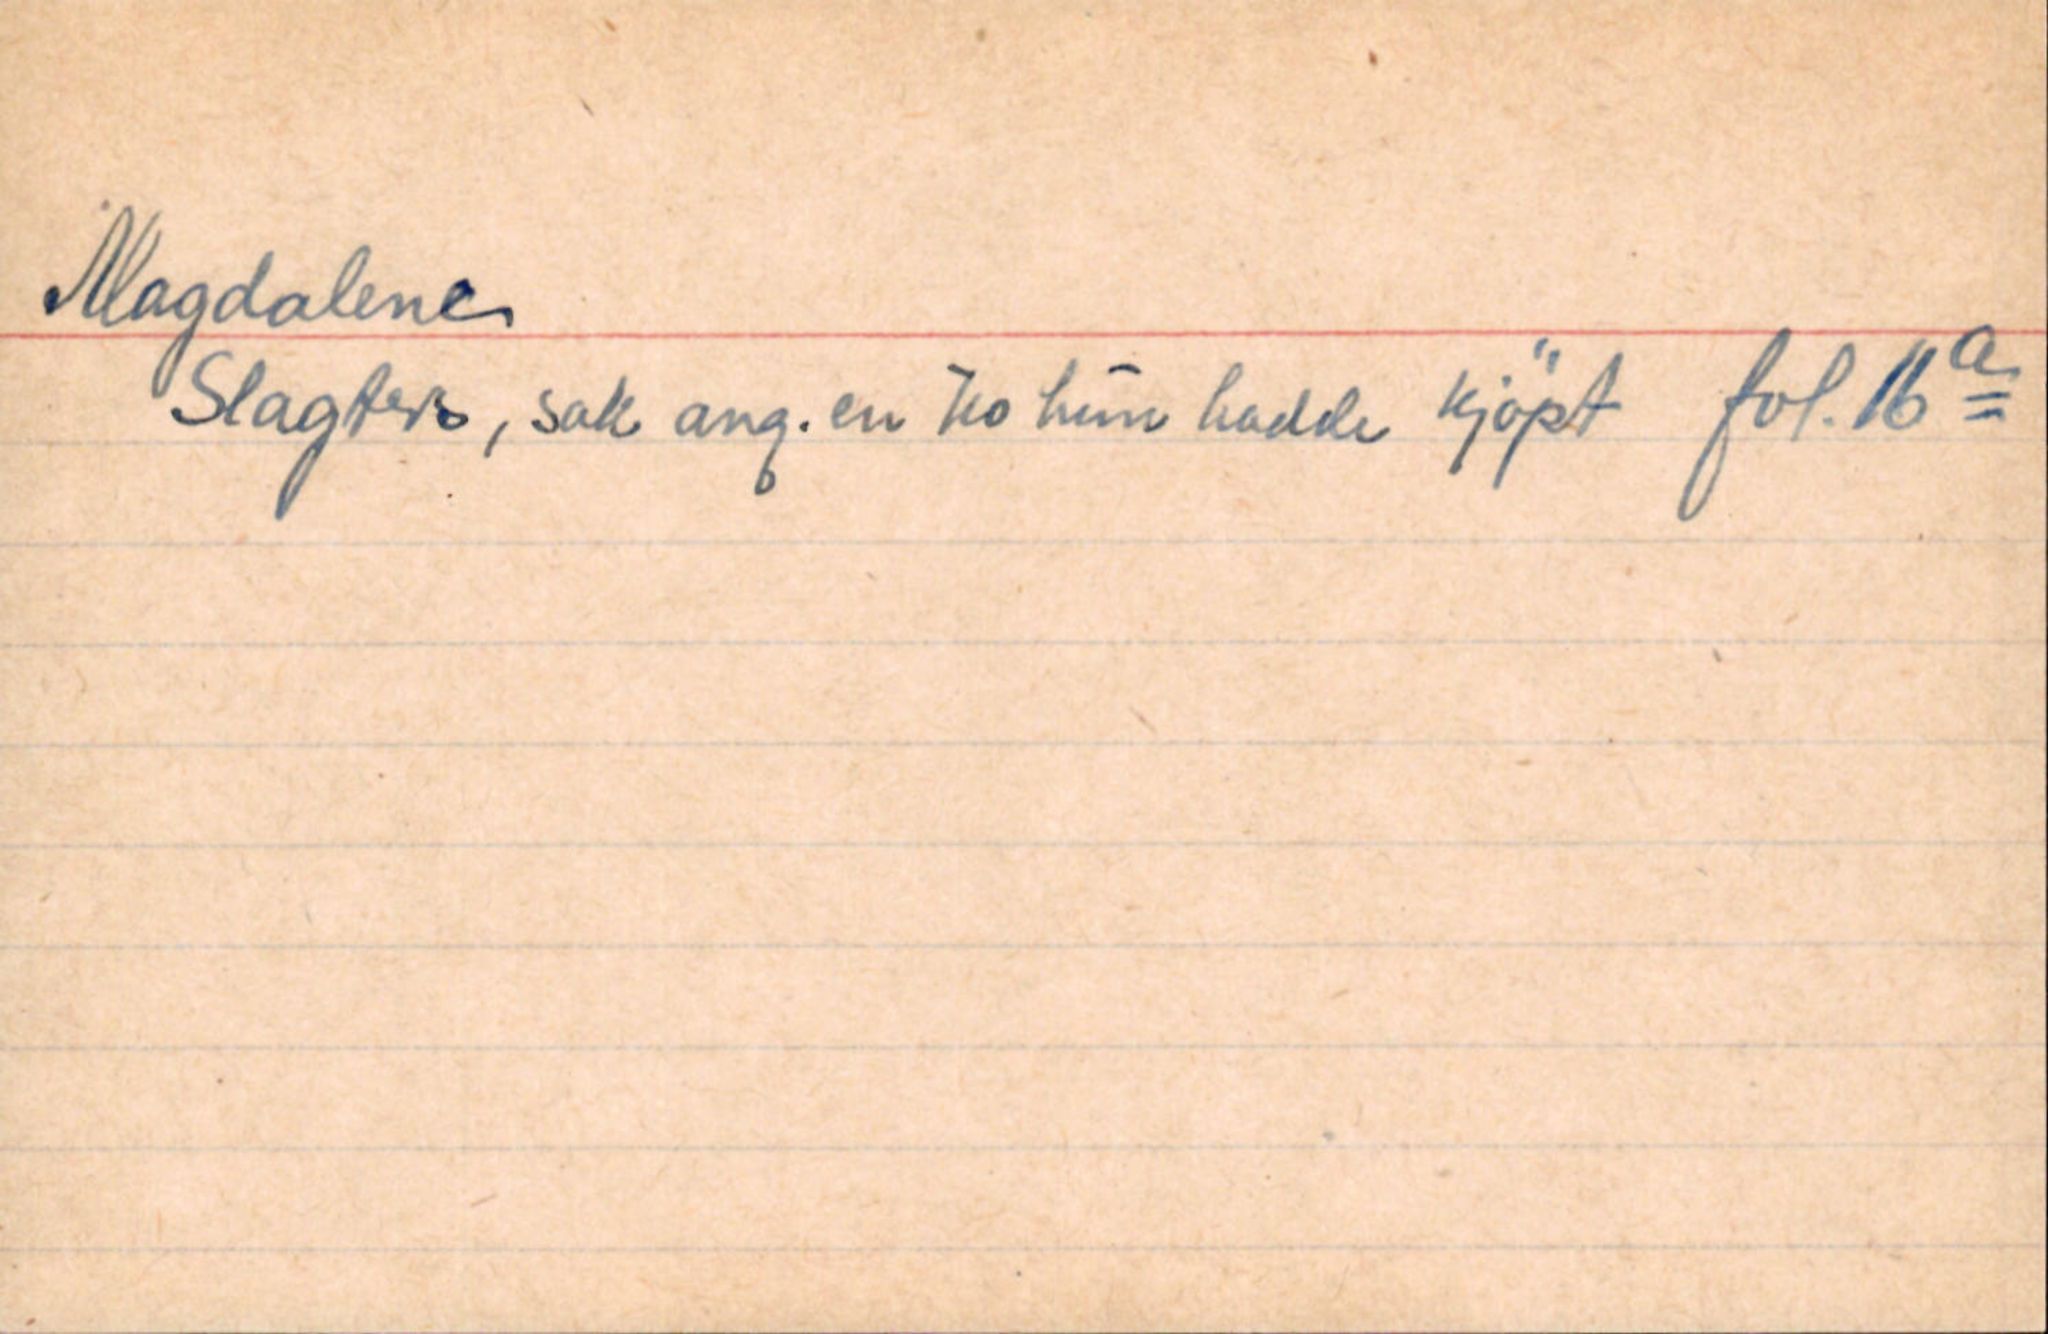 Magdalene
Slagters, sak ang. en ko hun hadde kjöpt fol. 16a